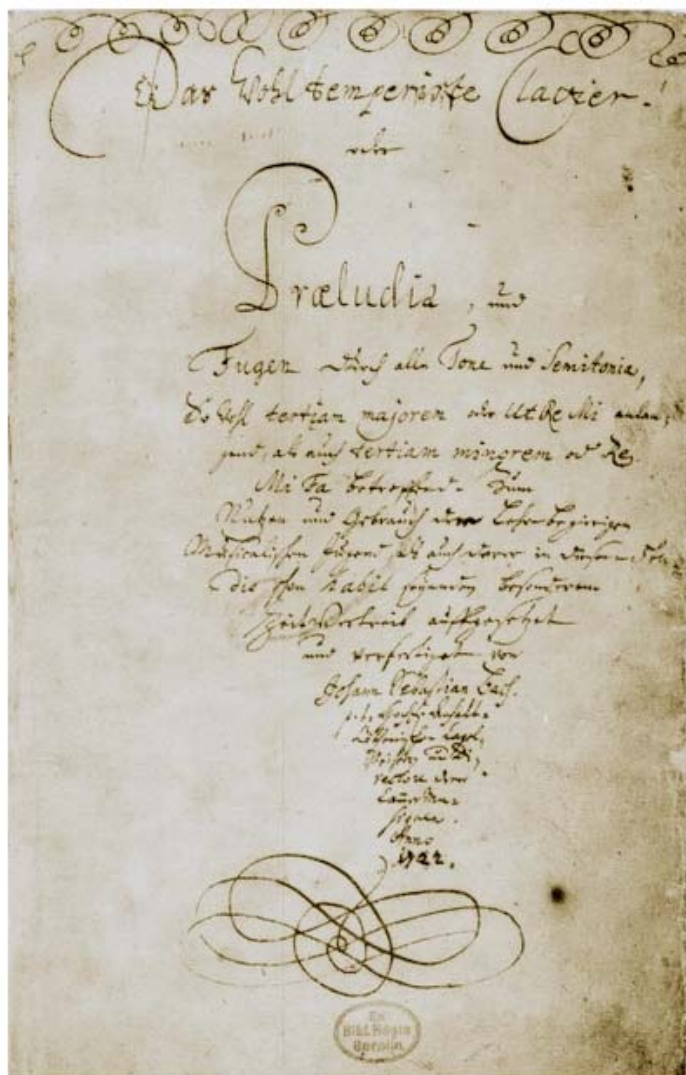 Das Wohltemperirte Clavier.
oder
Præludia, und
Fugen durch alle Tone und Semitonia,
So wohl tertiam majorem oder Ut Re Mi anlan-
gend, als auch tertiam minorem oder Re
Mi Fa betreffend. Zum
Nutzen und Gebrauch der Lehrbegierigen
Musicalischen Jugend, als auch derer in diesem stu-
dio schon habil seyenden besonderem
Zeitvertreib auffgesetzet
und verfertiget von
Johann Sebastian Bach.
p. t. Hochfürstlich Anhalt-
Cöthenischen Capel-
Meister und Di-
rectore derer
Cammer Mu-
siquen.
Anno
1722.
Ex
Bibl. Regia
Berolin.